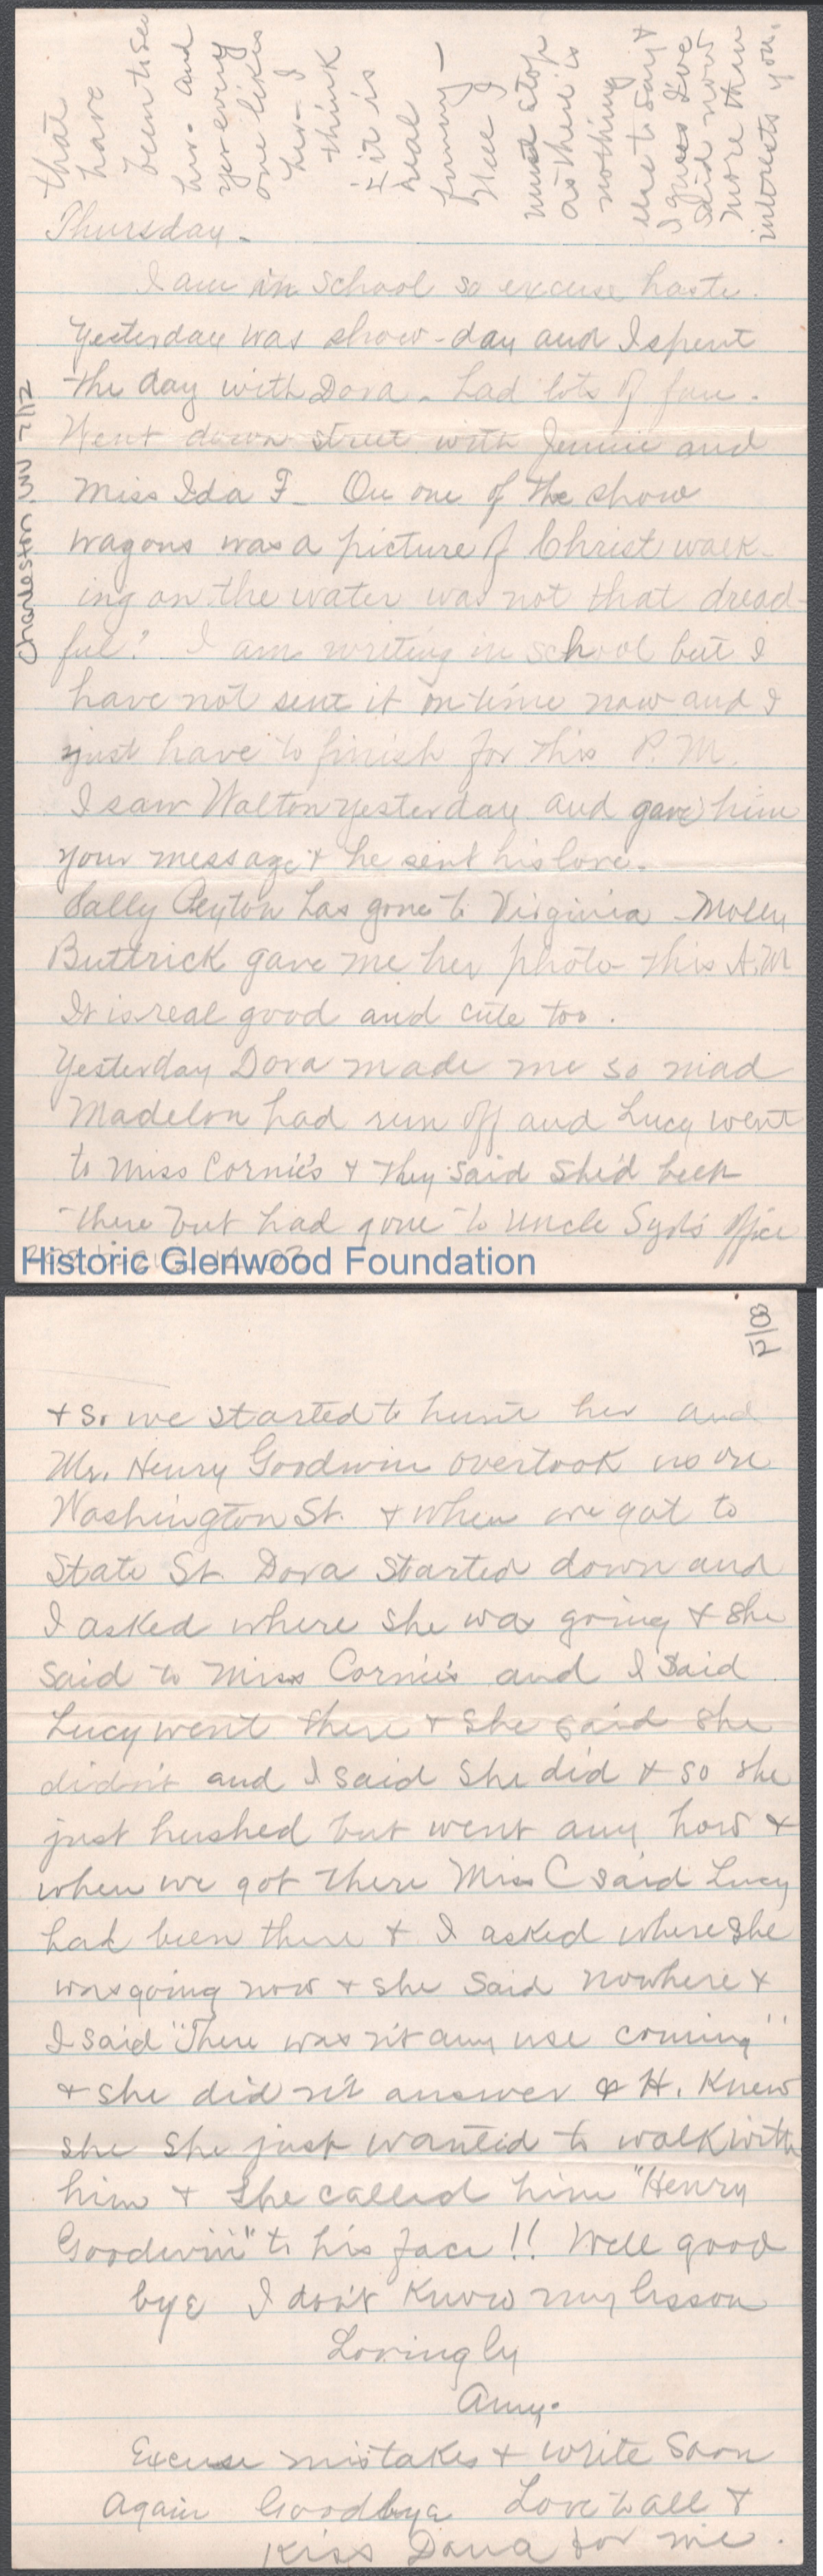 that
have
been to see
her - and
yer every
one likes
her - I
think
it is
real
funny —
Well I
must stop
as there is
nothing
else to say &
I guess I've
said now
more than
interests you.
Thursday.
I am in school so excuse haste.
Yesterday was show-day and I spent
the day with Dora - had lots of fun.
Went down street with Jennie and
Miss Ida F - On one of the show
wagons was a picture of Christ walk-
ing on the water was not that dread-
ful? I am writing in school but I
have not sent it on time now and I
just have to finish for this P.M.
I saw Walton yesterday and gave him
your message & he sent his love.
Sally Peyton has gone to Virginia - Molly
Buttrick gave me her photo this A.M
It is real good and cute too.
Yesterday Dora made me so mad
Madelon had run off and Lucy went
to Miss Cornie's & they said she'd been
there but had gone to Uncle Syd's office
Charleston WV 7/12
Historic Glenwood Foundation
& so we started to hunt her and
Mr. Henry Goodwin overtook us on
Washington St. & when we got to
State St. Dora started down and
I asked where she was going & she
said to Miss Cornie's and I said
Lucy went there & she said she
didn't and I said she did & so she
just hushed but went any how &
when we got there Miss C said Lucy
had been there & I asked where she
was going now & she said nowhere &
I said "There was n't any use coming"
& she did n't answer & H. Knew
she she just wanted to walk with
him & she called him "Henry
Goodwin" to his face !! Well good
bye I don't know my lesson
Lovingly
Amy.
Excuse mistakes & write soon
again Goodbye Love to all &
Kiss Dana for me.